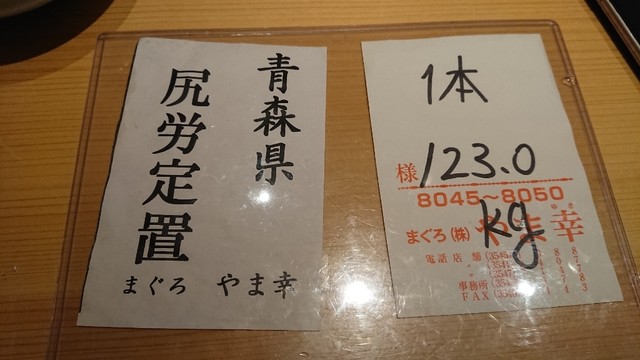 青森県
尻労定置
まぐろ やま幸
1本
様
123.0
8045~8050
kg
まぐろ(株)
幸
電話店舗(3545
(3541
(3547
事務所(354
FAX(354